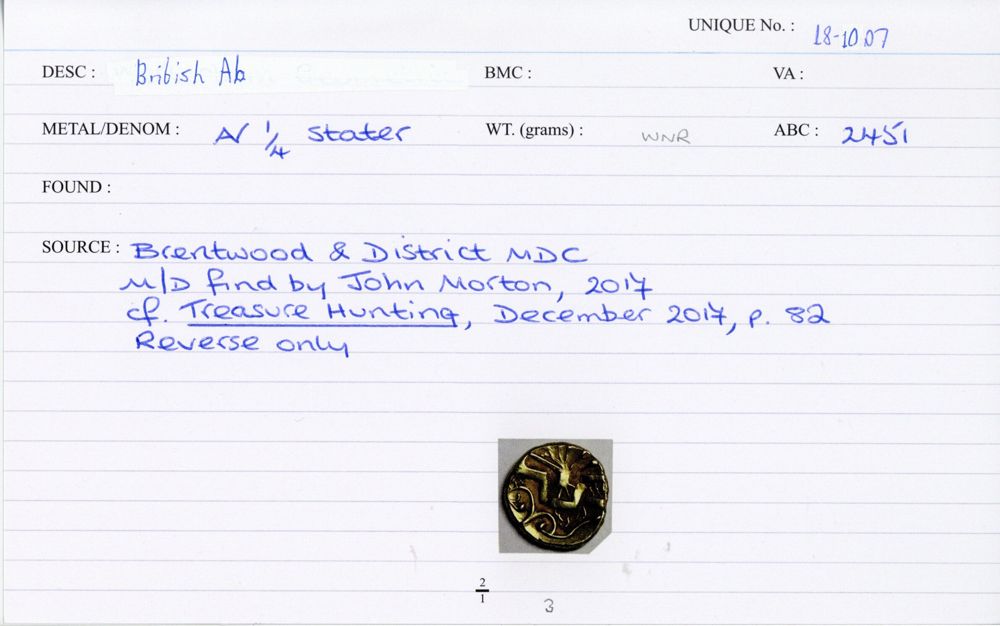 UNIQUE No. : 18-1007
DESC : Bribish Ab BMC : VA :
METAL/DENOM : A/ 1/4 Stater WT. (grams) : WNR ABC : 2451
FOUND :
SOURCE : Brentwood & District MDC
M/D find by John Morton, 2017
cf. Treasure Hunting, December 2017, p. 82
Reverse only
2
1
3